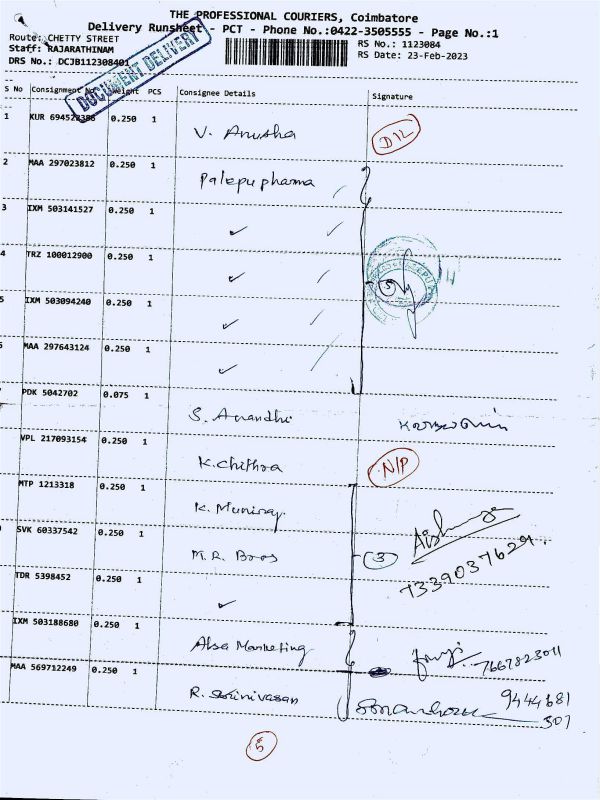 THE PROFESSIONAL COURIERS, Coimbatore
Delivery Runsheet - PCT - Phone No.:0422-3505555 - Page No.:1
Route: CHETTY STREET
RS No.: 1123084
Staff: RAJARATHINAM
RS Date: 23-Feb-2023
DRS No.: DCJB112308401
DOCUMENT DELIVERY
S No Consignment No Weight PCS Consignee Details Signature
1 KUR 694522386 0.250 1 V. Anusha D12
2 MAA 297023812 0.250 1 Palepu pharma
3 IXM 503141527 0.250 1 ✓
4 TRZ 100012900 0.250 1 ✓ 5
5 IXM 503094240 0.250 1 ✓
MAA 297643124 0.250 1 ✓
PDK 5042702 0.075 1 S. Anandhi
VPL 217093154 0.250 1 K. Chithra N/P
MTP 1213318 0.250 1 K. Muniraj
SVK 60337542 0.250 1 M.R. Boos 3
7339037629
TDR 5398452 0.250 1 ✓
IXM 503188680 0.250 1 Marketing 7667823011
MAA 569712249 0.250 1 R. Srinivasan 9444681
307
5